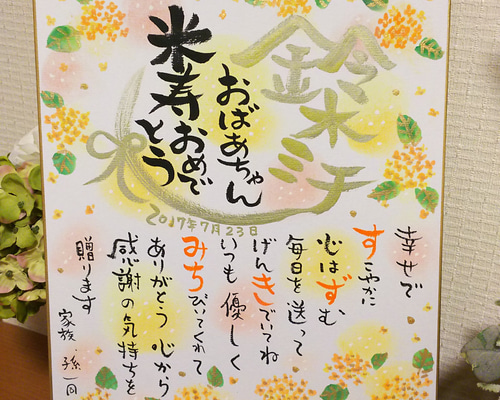 鈴木ミチ
おばあちゃん
米寿おめで
とう
2017年7月23日
幸せで
すこやかに
心はずむ
毎日を送って
げんきでいてね
いつも優しく
みちびいてくれて
ありがとう 心から
感謝の気持ちを
贈ります
家族 孫一同